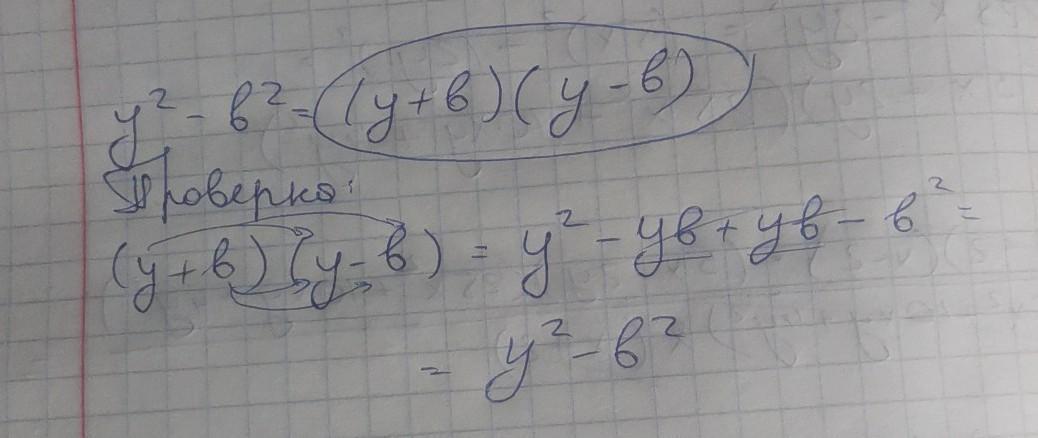 y² - в² = (y+в)(y-в)
Проверка:
(y+в)(y-в) = y² - yв + yв - в² =
= y² - в²